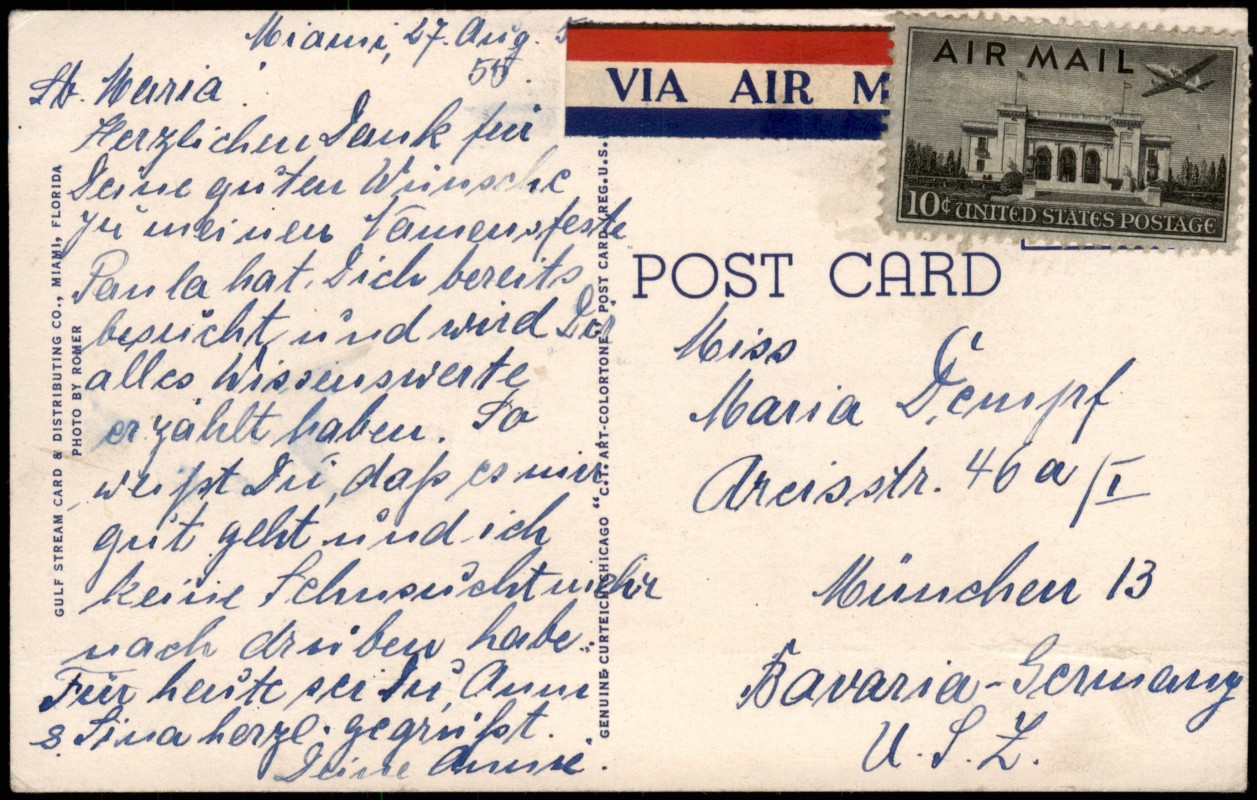 Miami, 27. Aug. 5
50.
Lb. Maria!
Herzlichen Dank für
Deine guten Wünsche
zu meinen Namensfeste
Paula hat Dich bereits
besucht, und wird Dir
alles Wissenswerte
erzählt haben. So
weißt Du, daß es mir
gut geht und ich
keine Sehnsucht mehr
nach drüben habe.
Für heute sei Du, Anni
s. Sina herzl. gegrüßt.
Deine Annie.
GULF STREAM CARD & DISTRIBUTING CO., MIAMI, FLORIDA
PHOTO BY ROMER
GENUINE CURTEICH-CHICAGO "C.T. ART-COLORTONE" POST CARD (REG. U.S.
VIA AIR M
AIR MAIL
10¢ UNITED STATES POSTAGE
POST CARD
Miss
Maria Dempf
Arcisstr. 46 a/I
München 13
Bavaria-Germany
U.S.Z.